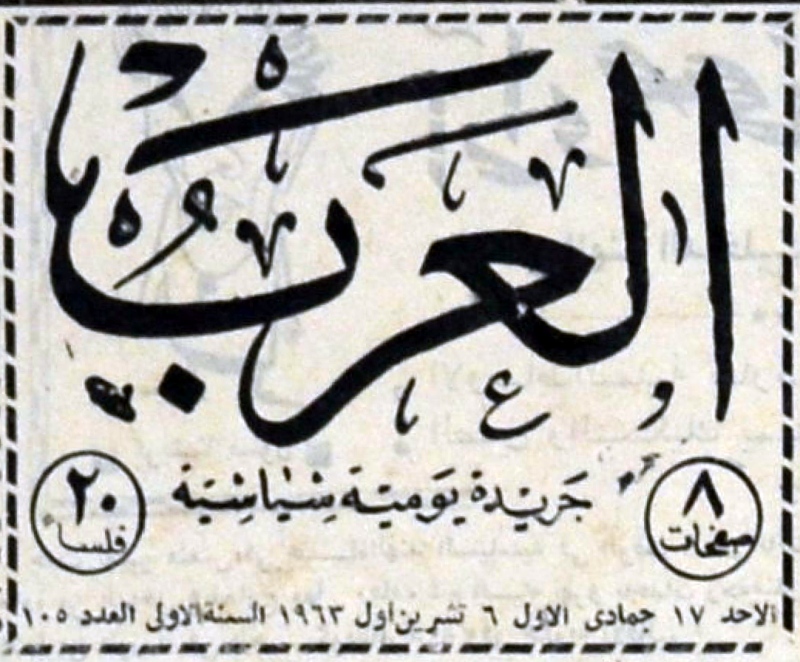 العرب
جريدة يومية سياسية
٨ صفحات
٢٠ فلسا
الاحد ١٧ جمادى الاول ٦ تشرين اول ١٩٦٣ السنة الاولى العدد ١٠٥